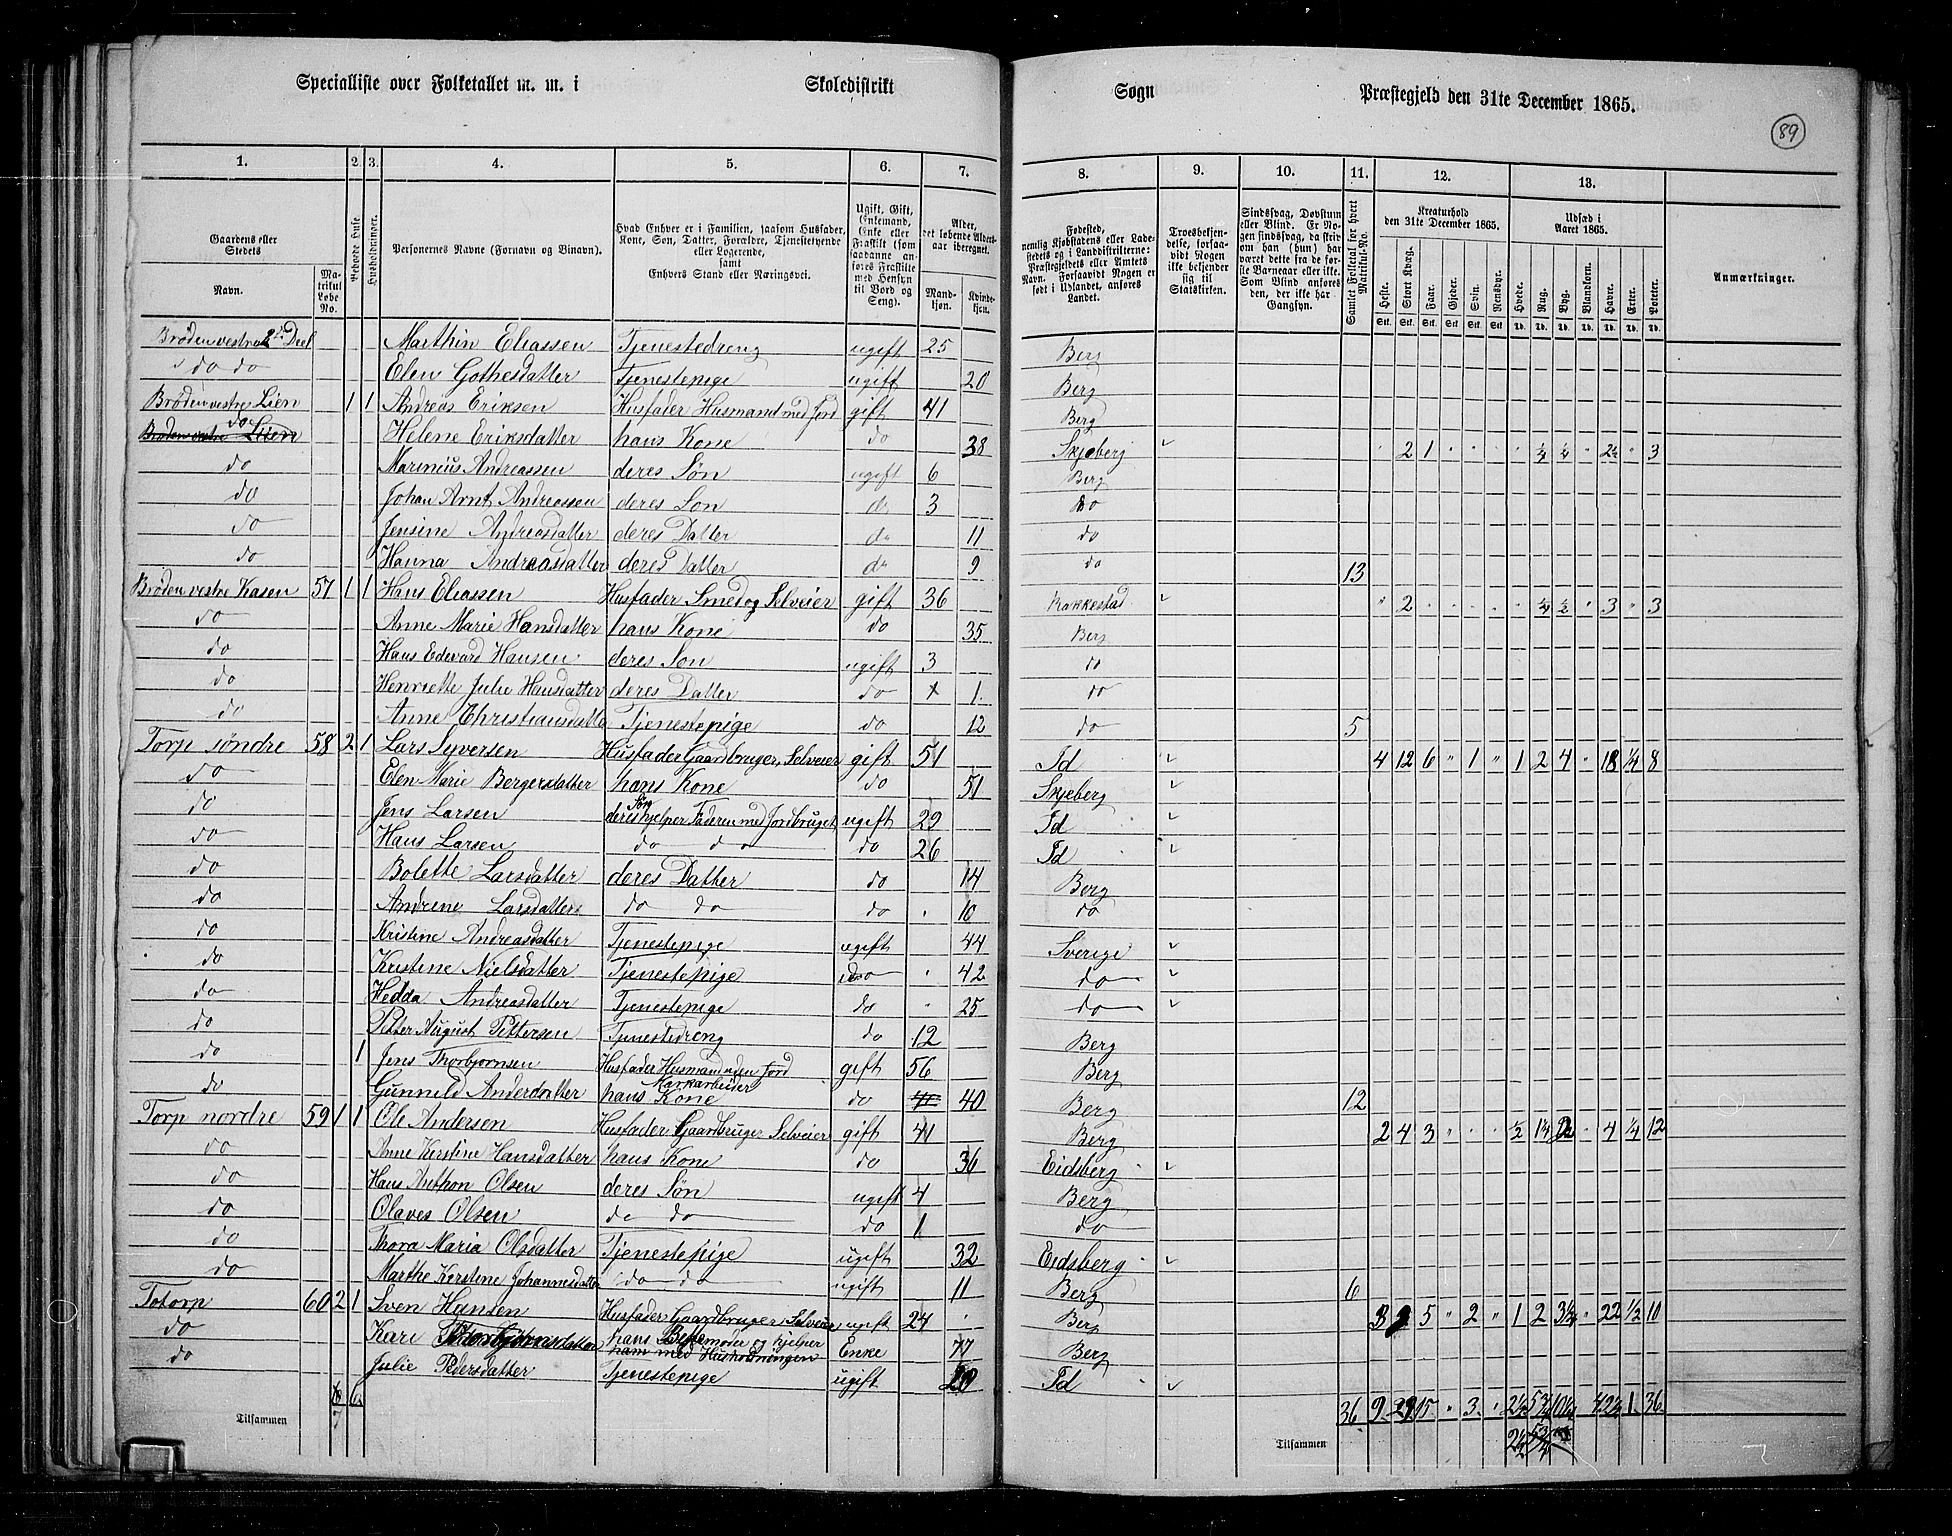 Specialliste over Folketallet m. m. i Skoledistrikt Sogn Præstegjeld den 31te December 1865.
89
1. 2. 3. 4. 5. 6. 7. 8. 9. 10. 11. 12. 13.
Gaardens eller Stedets
Navn.
Matrikul Løbe No.
Beboede Huse.
Husholdninger.
Personernes Navne (Fornavn og Binavn).
Hvad Enhver er i Familien, saasom Husfader, Kone, Søn, Datter, Forældre, Tjenestetyende eller Logerende, samt Enhvers Stand eller Næringsvei.
Ugift, Gift, Enkemand, Enke eller Fraskilt (som saadanne anføres Fraskilte med Hensyn til Bord og Seng).
Alder, det løbende Aldersaar iberegnet.
Mandkjøn. Kvindekjøn.
Fødested, nemlig Kjøbstadens eller Ladestedets og i Landdistrikterne: Præstegjeldets eller Amtets Navn. Forsaavidt Nogen er født i Udlandet, anføres Landet.
Troesbekjendelse, forsaavidt Nogen ikke bekjender sig til Statskirken.
Sindssvag, Døvstum eller Blind. Er Nogen sindssvag, da skrives om han (hun) har været dette fra de første Barneaar eller ikke. Som Blind anføres den, der ikke har Gangsyn.
Samlet Folketal for hvert Matrikul-No.
Kreaturhold den 31te December 1865.
Heste. Stort Kvæg. Faar. Gjeder. Svin. Rensdyr.
Udsæd i Aaret 1865.
Hvede. Rug. Byg. Blandkorn. Havre. Erter. Poteter.
Anmærkninger.
Brøden vestre 2de Deel Marthin Eliassen Tjenestedreng ugift 25 Berg
do do Elen Gothesdatter Tjenestepige ugift 20 Berg
Brøden vestre Lien 1 1 Andreas Eriksen Husfader Husmand med Jord gift 41 Berg
do Helene Eriksdatter hans Kone do 38 Skjeberg 2 1 ¼ ¼ 2½ 3
do Marinius Andreassen deres Søn ugift 6 Berg
do Johan Arnt Andreassen deres Søn do 3 do
do Jensine Andreasdatter deres Datter do 11 do
do Hanna Andreasdatter deres Datter do 9 do 13
Brøden vestre Kasen 57 1 1 Hans Eliassen Husfader Smed og Selveier gift 36 Rakkestad 2 ¼ ½ 3 3
do Anne Marie Hansdatter hans Kone do 35 Berg
do Hans Edevard Hansen deres Søn ugift 3 do
do Henriette Julie Hansdatter deres Datter do 1 do
do Anne Christiansdatte Tjenestepige do 12 do 5
Torp søndre 58 2 1 Lars Syversen Husfader Gaardbruger, Selveier gift 51 Id 4 12 6 1 1 2 4 18 ¼ 8
do Elen Marie Bergersdatter hans Kone do 51 Skjeberg
do Jens Larsen deres Søn hjelper Faderen med Jordbruget ugift 29 Id
do Hans Larsen do do do 26 Id
do Bolette Larsdatter deres Datter do 14 Berg
do Andrine Larsdatter do do do 10 do
do Kristine Andreasdatter Tjenestepige ugift 44 Sverige
do Kristine Nielsdatter Tjenestepige do 42 do
do Hedda Andreasdatter Tjenestepige do 25 do
do Petter August Pettersen Tjenestedreng do 12 Berg
do 1 Jens Thorbjornsen Husfader Husmand uden Jord Markarbeider gift 56 Berg
do Gunnild Andersdatter hans Kone do 40 Berg 12
Torp nordre 59 1 1 Ole Andersen Husfader Gaardbruger Selveier gift 41 Berg 2 4 3 ½ 1¼ 2 4 ¼ 12
do Anne Kerstine Hansdatter hans Kone do 36 Eidsberg
do Hans Anthon Olsen deres Søn ugift 4 Berg
do Olaves Olsen do do do 1 do
do Thora Maria Olsdatter Tjenestepige ugift 32 Eidsberg
do Marthe Kerstine Johannesdatter do do ugift 11 Berg 6
Totorp 60 2 1 Sven Hansen Husfader Gaardbruger, Selveier ugift 24 Berg 3 9 5 2 1 2 3¼ 22 ½ 10
do Kari Thorbjørnsdatter hans Bestemoder og hjelper ham med Husholdningen Enke 77 Berg
do Julie Pedersdatter Tjenestepige ugift 20 Id
Tilsammen 7 6
Tilsammen 36 9 29 15 3 2½ 5¾ 10¼ 42½ 1 36
2½ 5¾